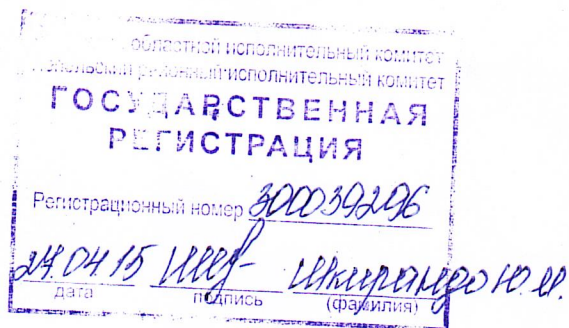 областной исполнительный комитет
районный исполнительный комитет
ГОСУДАРСТВЕННАЯ
РЕГИСТРАЦИЯ
Регистрационный номер 300039296
27.04.15 Шкирандо Ю.И.
дата подпись (фамилия)